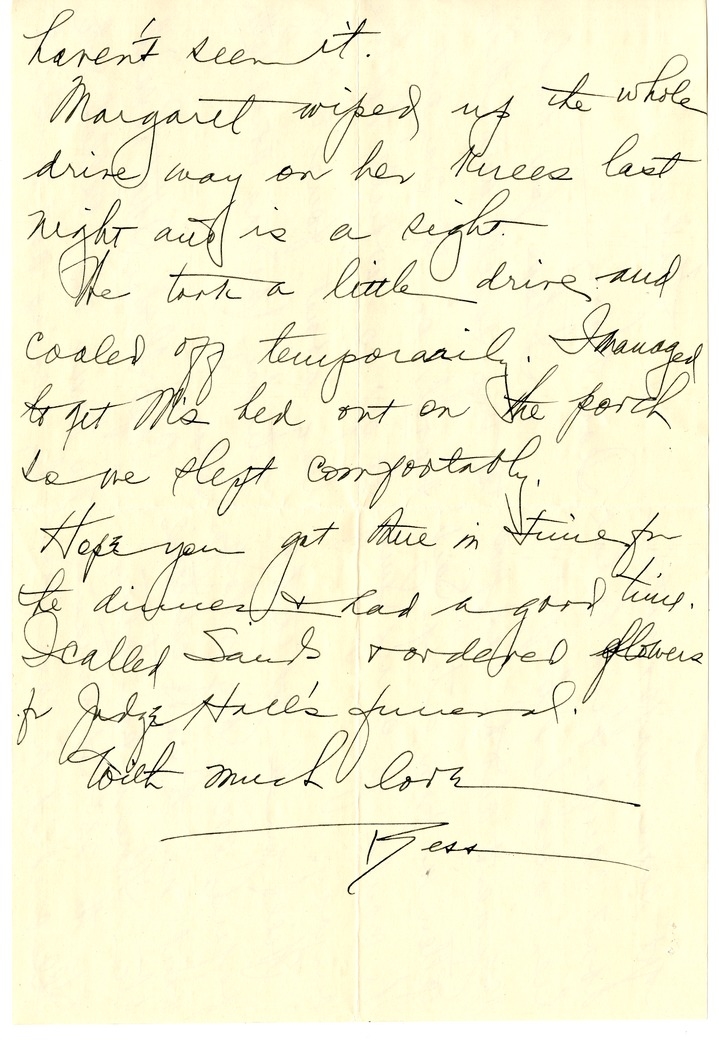 haven't seen it.
Margaret wiped up the whole
drive way on her knees last
night and is a sight.
We took a little drive and
cooled off temporarily. I managed
to get M's bed out on the porch
so we slept comfortably.
Hope you got there in time for
the dinner & had a good time.
I called Sands & ordered flowers
for Judge Hall's funeral.
With much love
Bess